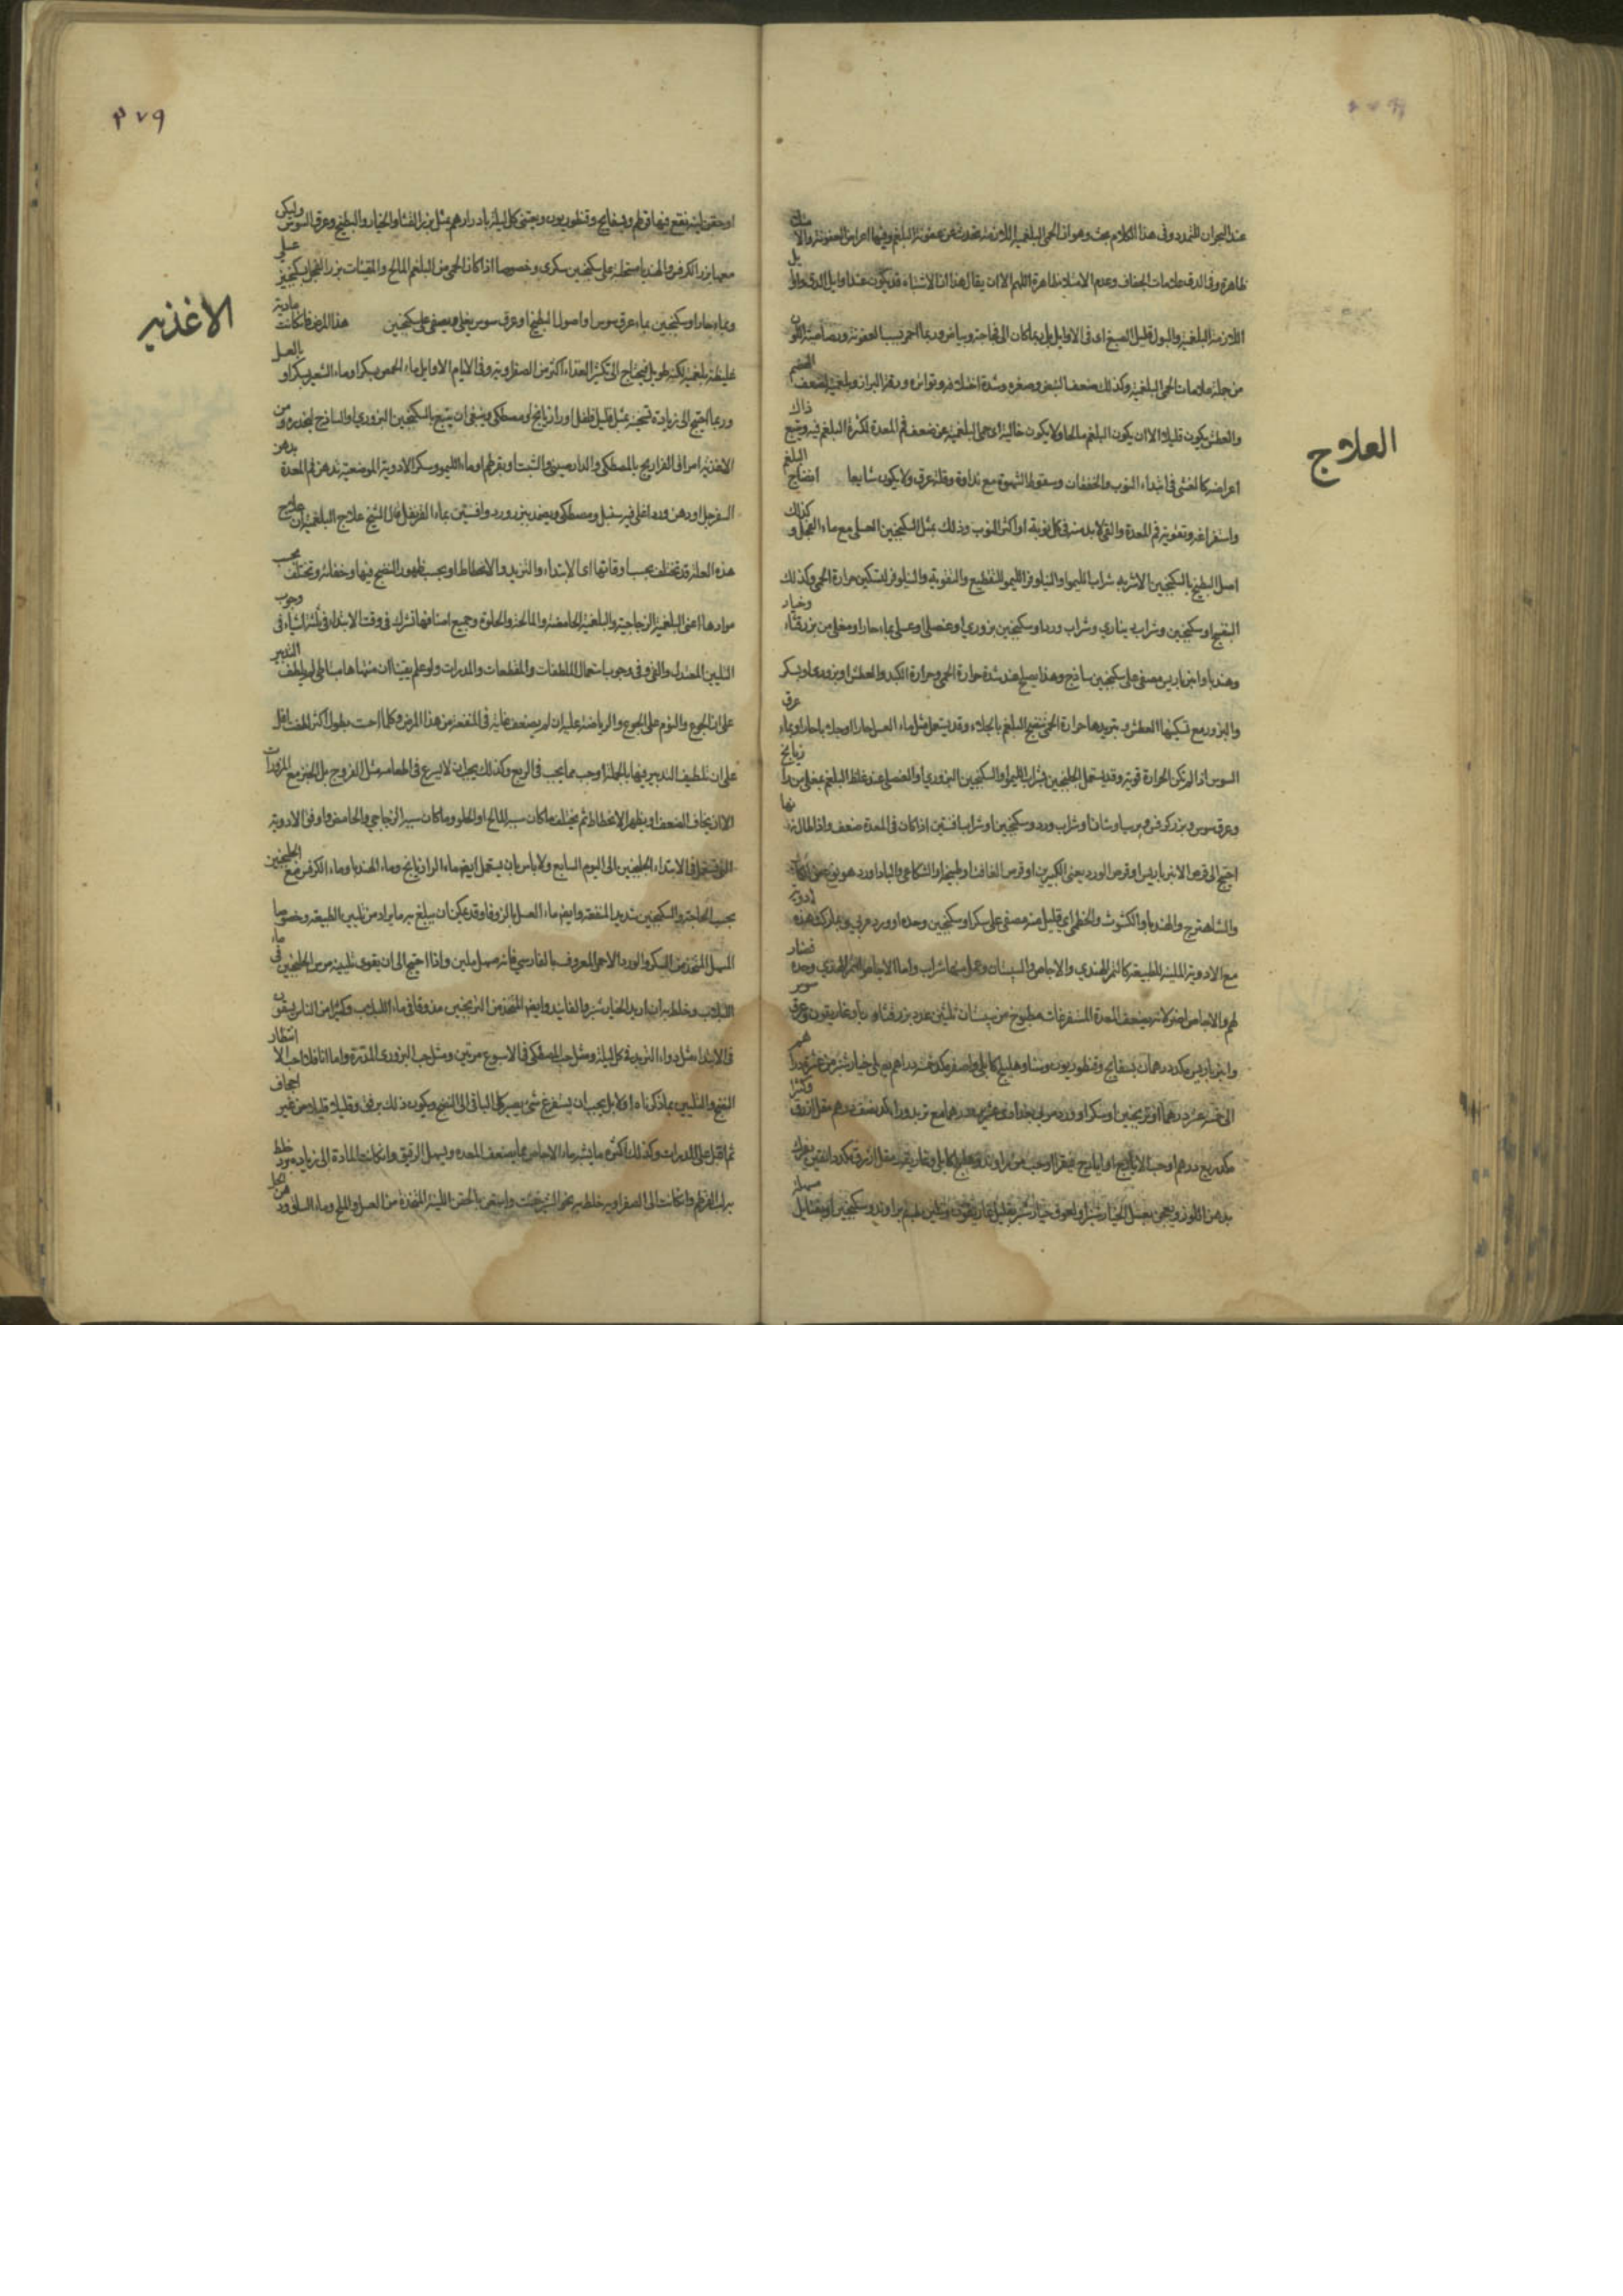 عند البحران للتمدد وفى هذا الكلام بحث وهو ان الحمى البلغمية اللازمة تحدث عن عفونة البلغم وفيها اعراض العفونة والامتلاء
ظاهرة وفى الدق علامات الجفاف وعدم الامتلاء ظاهرة اللهم الا ان يقال هذا الاشتباه قد يكون عند اوايل الدق واوايل
اللازمة البلغمية والبول قليل الصبغ اى فى الاوايل بل ربما كان الى فجاجة وبياض وربما احمر بسبب العفونة ورصاصية اللون
من جملة علامات الحمى البلغمية وكذلك ضعف النبض وصغره وشدة اختلافه وتواتره ورقة البراز وبلغميته لضعف الهضم
والعطش يكون قليلا الا ان يكون البلغم مالحا ولا يكون خالية اى حمى البلغمية عن ضعف فم المعدة لكثرة البلغم فيه ويتبع ذلك
اعراضه كالغشى فى ابتداء النوب والخفقان وسقوط الشهوة مع نداوة وقلة عرق ولا يكون سابغا انضاج البلغم
العلاج
واستفراغه وتقوية فم المعدة والقئ لابد منه فى كل نوبة او اكثر النوب وذلك بمثل السكنجبين العسلى مع ماء الفجل وكذلك
اصل البطيخ بالسكنجبين الاشربة شراب الليمو او النيلوفر الليمو للتقطيع والتقوية والنيلوفر لتسكين حرارة الحمى وكذلك
البنفسج او سكنجبين وشراب ديناري وشراب ورد او سكنجبين بزوري او عنصلى او عسلى بماء حار او مغلى من بزر قثاء وخيار
وهندبا وانبرباريس مصفى على سكنجبين ساذج وهذا يصلح عند شدة حرارة الحمى وحرارة الكبد والعطش او بزورى او بسكر
والبزور مع تسكينها العطش وتبريدها حرارة الحمى تنضج البلغم بالجلاء وقد يستعمل مثل ماء العسل حارا او جلاب حار او بماء عرق
السوس اذا لم تكن الحرارة قوية وقد يستعمل الجلنجبين بشراب الليمو او السكنجبين البزوري او العنصلى عند غلظ البلغم بمغلى من رازيانج
وعرق سوس وبزر كرفس وبرسياوشان او شراب ورد وسكنجبين او شراب افسنتين اذا كان فى المعدة ضعف واذا طال زمانها
احتيج الى قرص الانبرباريس او قرص الورد يعنى الكبيرين او قرص الغافث او طبيخه او الشكاعى والباداورد
والشاهترج والهندبا والكشوث والخطمى قليل منه مصفى على سكر او سكنجبين وحده او ورد مربى هذه ادوية
مع الادوية الملينة للطبيعة كالتمر الهندي والاجاص والسبستان وعمل منها شراب واما الاجاص والتمر الهندي وحده فضار
لهم والاجاص اضر لانه يضعف المعدة المستفرغات مطبوخ من سبستان ثلثين عدد بزر قثاء وغاريقون وعرق سوس
وانبرباريس مكد درهمان بسفايج وقنطوريون وسنا وهليلج كابلى واصفر مكد خمسة دراهم على خيار شنبر من عشرة درهم
الى خمسة عشر درهما او ترنجبين او سكر او ورد مربى درهما مع تربد وراوند نصف درهم مقل ازرق وكثيرا
مكد ربع درهم او حب الايارج او ايارج فيقرا وهليلج كابلى وغاريقون مقل ازرق مكد دانقين يعرك
بدهن اللوز ويعجن بعسل الخيار شنبر او لعوق خيار شنبر بقليل غاريقون وسكنجبين او بفتايل مسهلة
٢٧٩
او حقن لينة تقع فيها قرطم وبسفايج وقنطوريون ويعتنى كل ليلة بادرارهم بمثل بزر القثاء والخيار والبطيخ وعرق السوس وليكن
معها بزر الكرفس والهندبا مستحلبة على سكنجبين سكرى وخصوصا اذا كان الحمى من البلغم المالح والمقيئات بزر الفجل بسكنجبين عسلى
وماء حار او سكنجبين بماء عرق سوس او اصول البطيخ او عرق سوس يغلى ويصفى على سكنجبين هذا المرض فلما كانت مادته
الاغذية
غليظة بلغمية لكنه طويل فيحتاج الى تكثير الغذاء اكثر من الصفراوية وفى الايام الاوايل ماء الحمص بسكر او ماء الشعير بسكر او بالعسل
وربما احتيج الى زيادة تسخينه بمثل قليل فلفل او رازيانج او مصطكى وينبغى ان يتبع بالسكنجبين البزوري او الساذج ليحدره ومن
الاغذية امراق الفراريج بالمصطكى والدارصينى والشبت او بقرطم او ماء الليمو وسكر الادوية الموضعية تدهن فم المعدة بدهن
السفرجل او دهن ورد اغلى فيه سنبل ومصطكى ويضمد بزر ورد وافسنتين بماء القرنفل قال الشيخ علاج البلغمية ان علاج
هذه العلة قد تختلف بحسب اوقاتها اى الابتداء والتزيد والانحطاط او بحسب ظهور النضج فيها وخفائه وتختلف بحسب
موادها اعنى البلغمية الزجاجية والبلغمية الحامضة والمالحة والحلوة وجميع اصنافها تشترك فى وقت الابتداء فى ثلثة اشياء فى وجوب
التليين المعتدل والقئ وفى وجوب استعمال الملطفات والمقطعات والمدرات ولو علم يقينا ان منتهاها التدبير
على ان الجوع والنوم على الجوع والرياضة عليه ان لم يضعف غاية فى المنفعة من هذا المرض وكلما
على ان تلطيف التدبير فيها بالجملة اوجب مما يجب فى الربع وكذلك يجب ان لا يسرع فى اطعامه مثل الفروج بل الخبز مع المزورات
الا ان يخاف الضعف او يظهر الانحطاط ثم يختلف ما كان سببه المالح او الحلو وما كان سببه الزجاجي والحامض واوفق الادوية
التى تستعمل فى الابتداء الجلنجبين الى اليوم السابع ولا باس بان يستعمل ايضا ماء الرازيانج وماء الهندبا وماء الكرفس مع الجلنجبين
بحسب الحاجة والسكنجبين شديد المنفعة وايضا ماء العسل بالزوفا وقد يمكن ان يبلغ به ما يراد من تليين الطبيعة وخصوصا
المسهل المتخذ من السكر والورد الاحمر المعروف بالفارسي فانه مسهل ملين واذا احتيج الى ان يقوى تليينه مرس الجلنجبين فى ماء
اللبلاب وخلط به ان اريد الخيار شنبر والفانيد وايضا المتخذ من الترنجبين مذوفا فى ماء اللبلاب وكثيرا من الناس يسقون
فى الابتداء مثل دواء التربد فى كل ليلة ومثل حب المصطكى فى الاسبوع مرتين ومثل حب البزورى المدرة واما انا فلا احب الا انتظار
النضج والتليين بما ذكرناه اولا بل يجب ان يستفرغ شئ يصبر على الباقى الى النضج ويكون ذلك برفق وقليلا قليلا من غير اجحاف
ثم اقبل على المدرات وكذلك اكثر ما يشير بماء الاجاص مما يضعف المعدة ويسهل الرقيق وان كانت المادة الى زيادة برد خلط
به لب القرطم وان كانت الى الصفراوية خلط به نحو الشيرخشت واستعن بالحقن اللينة المتخذة من العسل والملح وماء السلق ودهن الخل